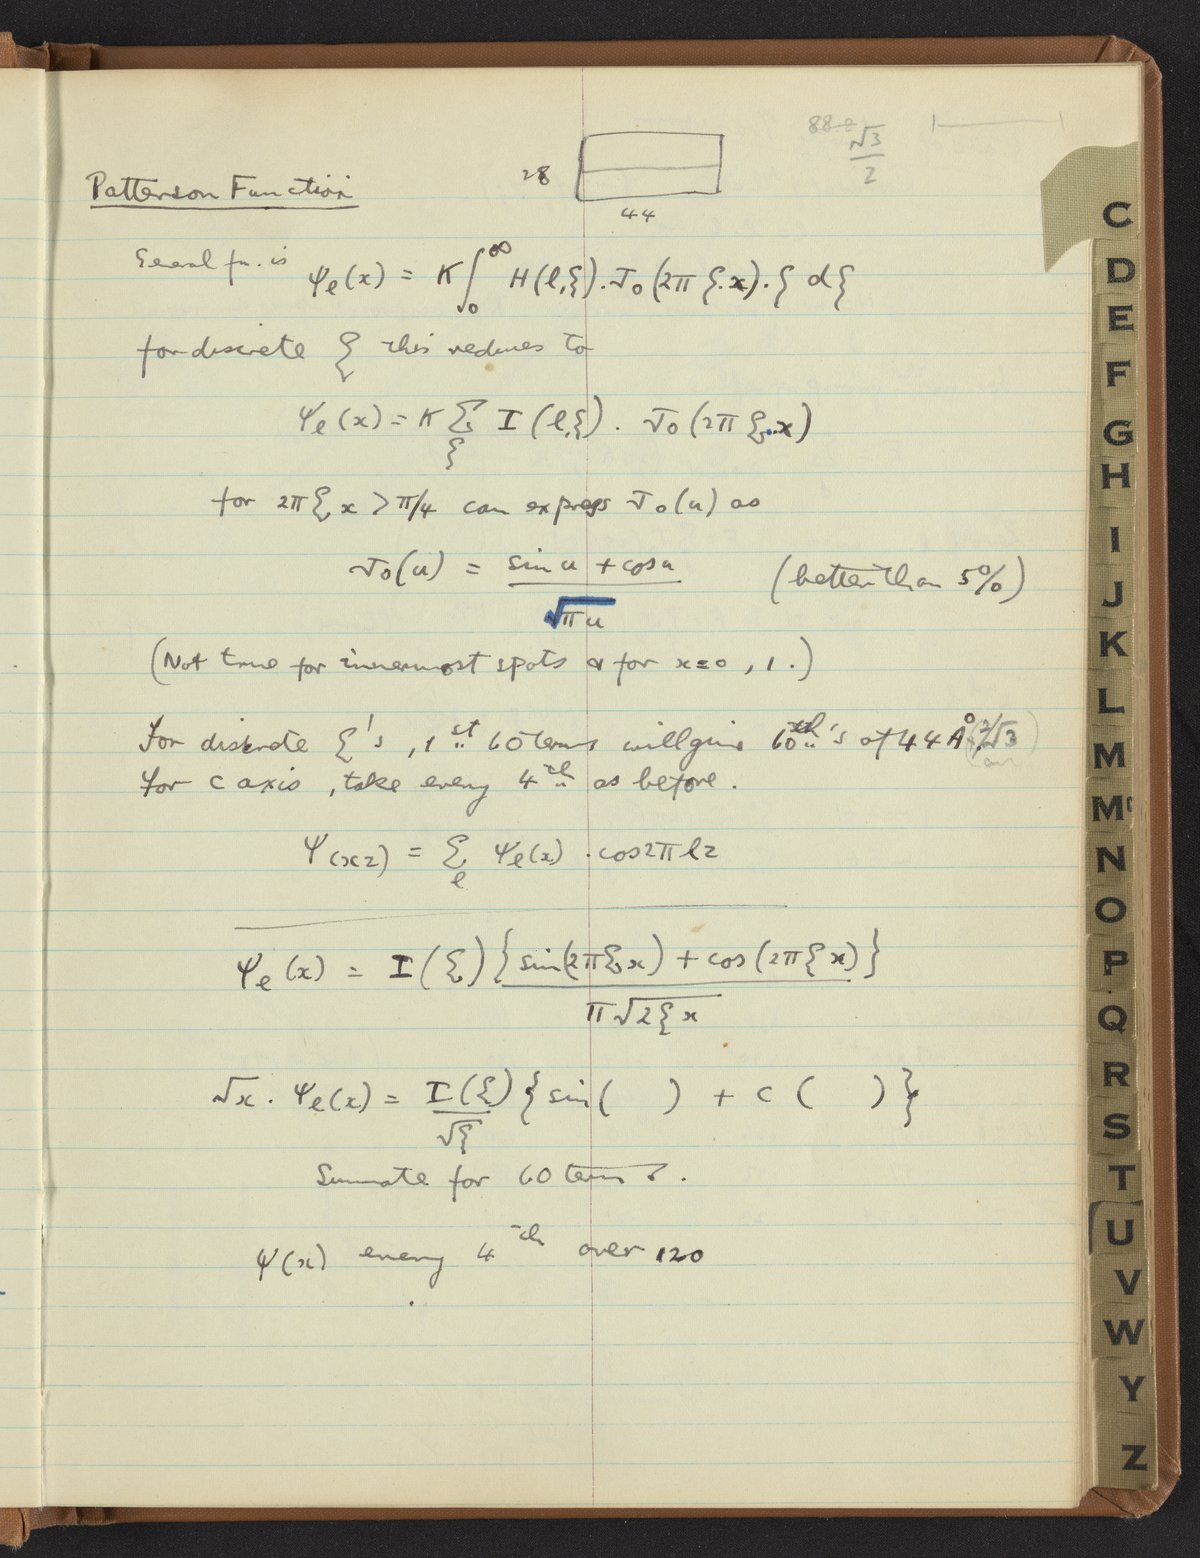 88
√3/2
28
44
Patterson Function
General fn. is ψℓ(x) = K ∫₀^∞ H(ℓ,ξ). J₀(2π ξ.x). ξ dξ
for discrete ξ this reduces to
ψℓ(x) = K Σ_ξ I(ℓ,ξ). J₀(2π ξ.x)
for 2π ξ x > π/4 can express J₀(u) as
J₀(u) = (sin u + cos u)/√πu (better than 5%)
(Not true for innermost spots & for x=0, 1.)
For discrete ξ's, 1st 60 terms will give 60th's of 44Å
for c axis, take every 4th as before.
ψ(xz) = Σ_ℓ ψℓ(x) . cos2πℓz
ψℓ(x) = I(ξ){sin(2πξx) + cos(2πξx)}/π√2ξx
√x . ψℓ(x) = I(ξ)/√ξ {sin( ) + c ( )}
Summate for 60 terms.
ψ(x) every 4th over 120
C
D
E
F
G
H
I
J
K
L
M
Mᶜ
N
O
P
Q
R
S
T
U
V
W
Y
Z